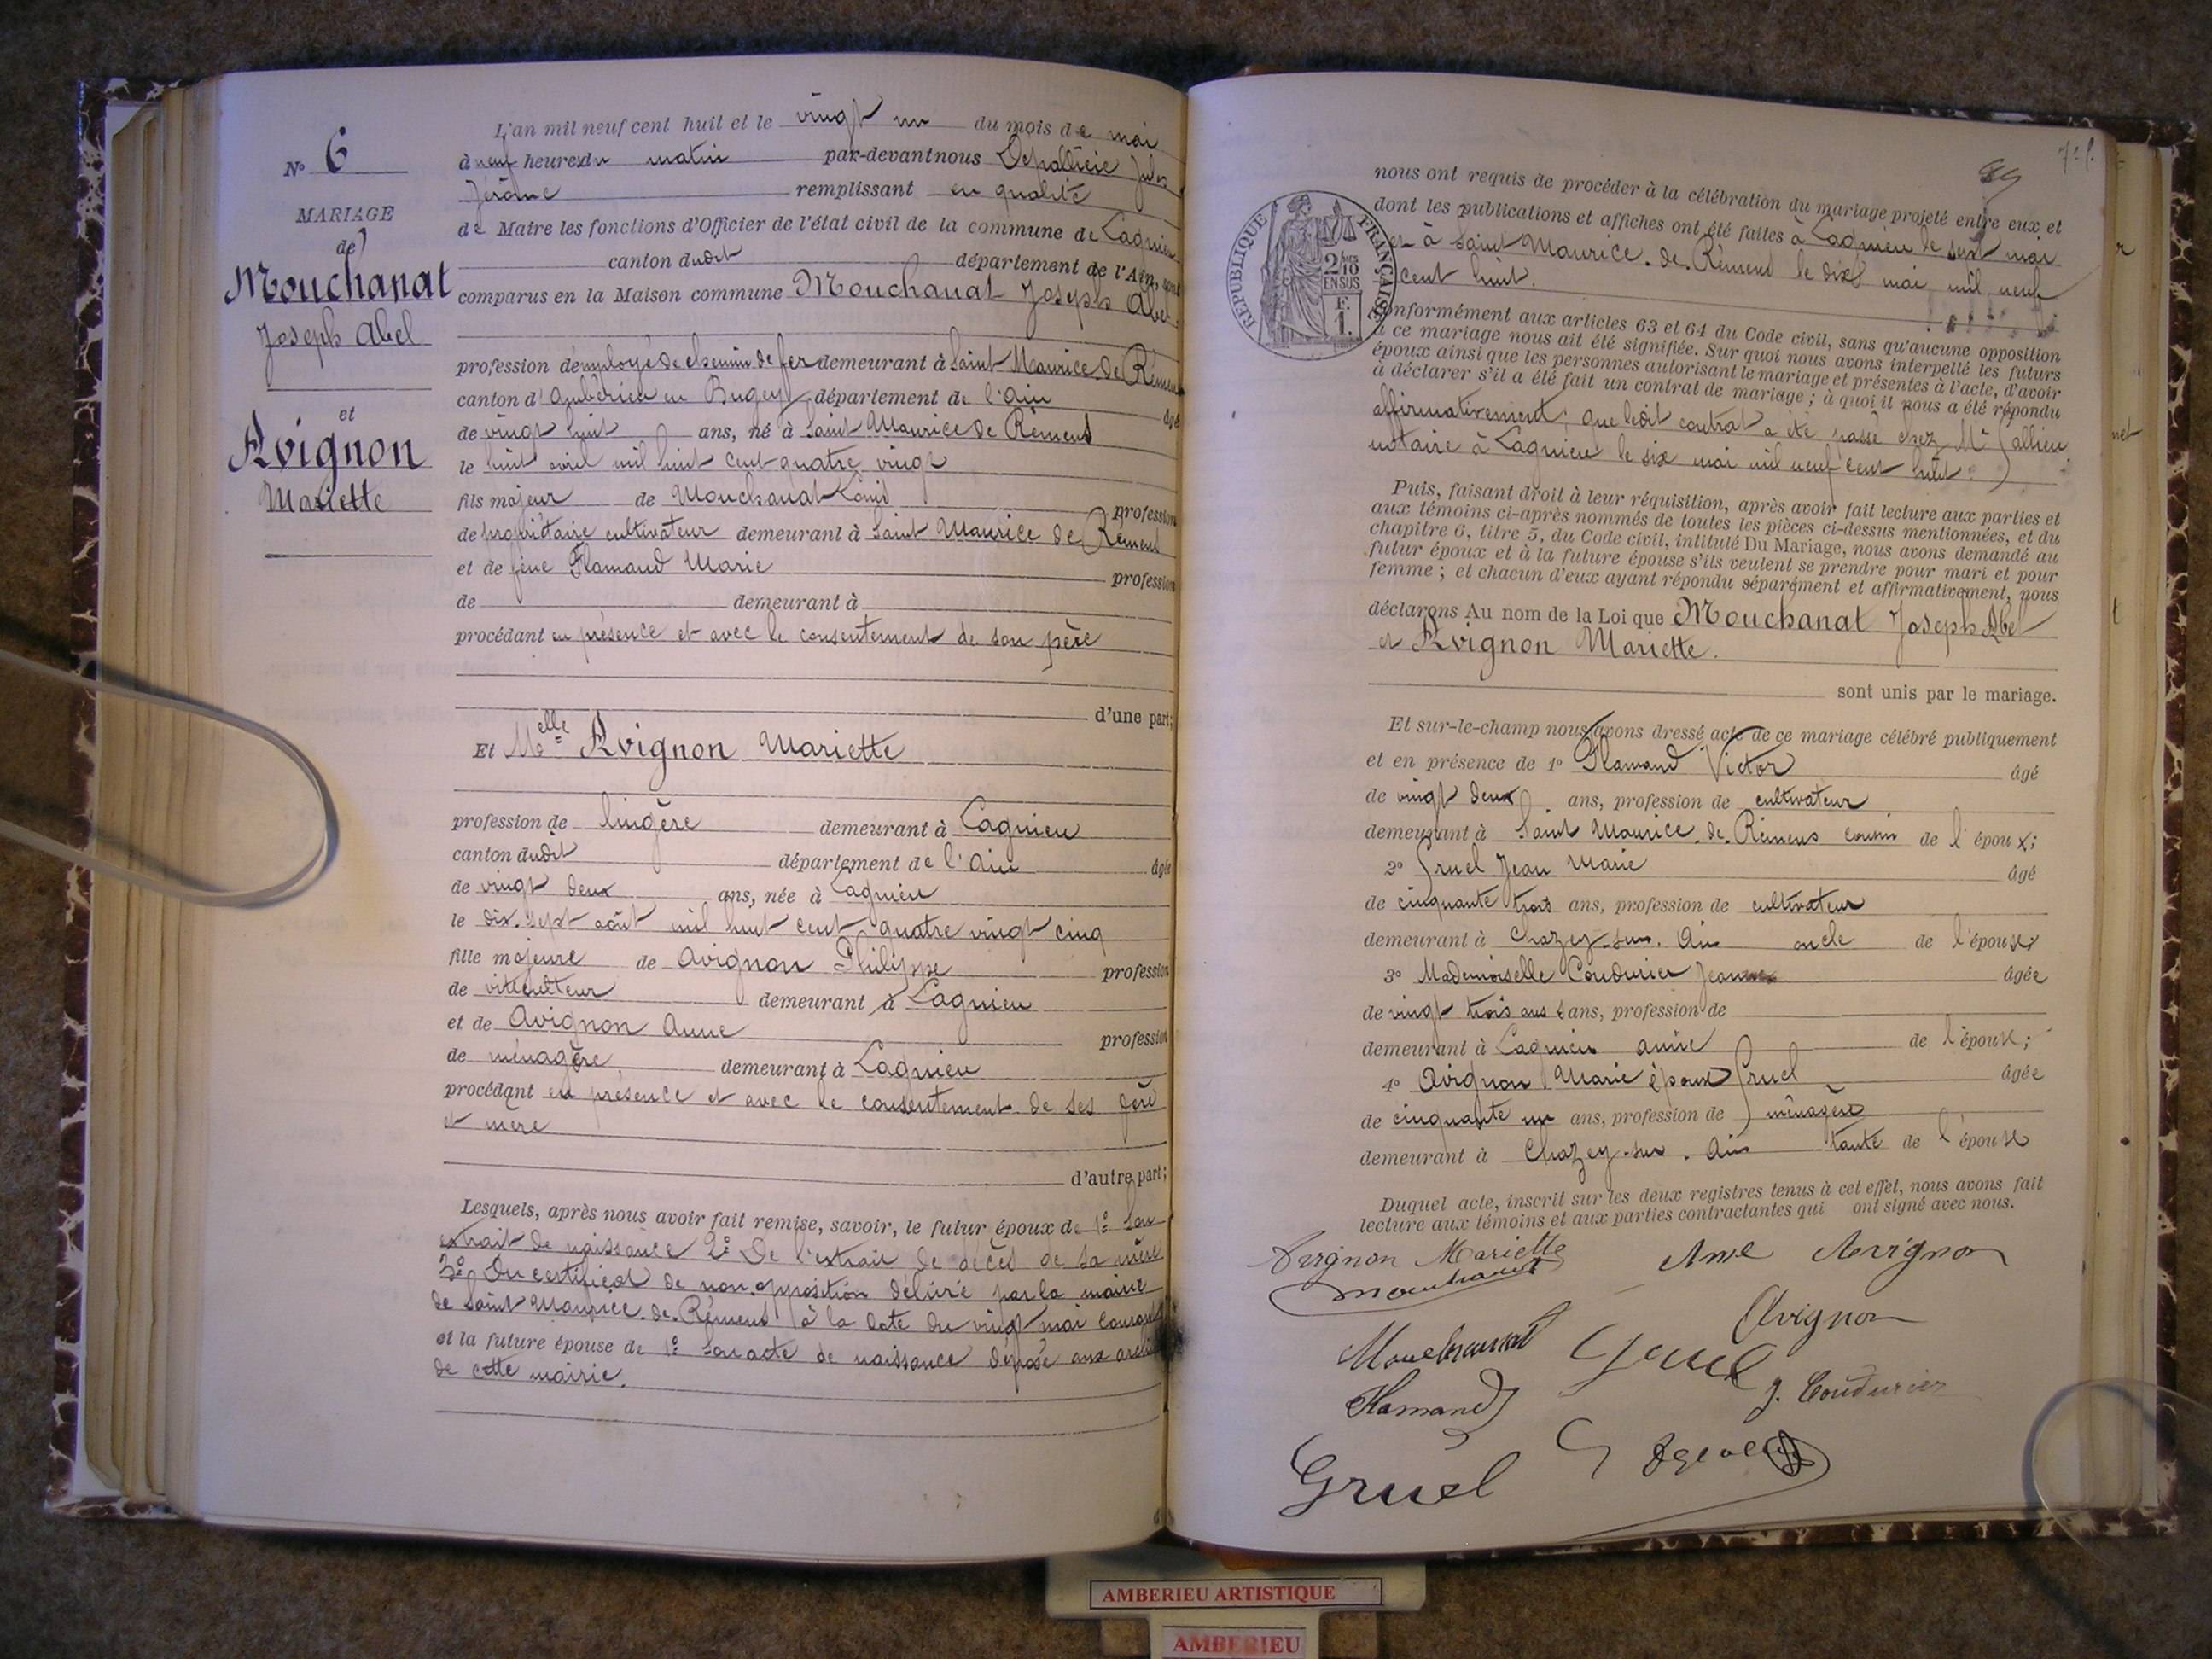 N° 6
MARIAGE
de
Mouchanat
Joseph Abel
et
Avignon
Mariette
L'an mil neuf cent huit et le vingt un du mois de mai
à neuf heures du matin par-devant nous Jules
Jérôme remplissant en qualité
de Maire les fonctions d'Officier de l'état civil de la commune de Lagnieu
canton dudit département de l'Ain, sont
comparus en la Maison commune Mouchanat Joseph Abel
profession d'employé de chemin de fer demeurant à Saint-Maurice-de-Rémens
canton d'Ambérieu en Bugey département de l'Ain âgé
de vingt huit ans, né à Saint Maurice de Rémens
le huit avril mil huit cent quatre vingt
fils majeur de Mouchanat Louis profession
de propriétaire cultivateur demeurant à Saint Maurice de Rémens
et de feue Flamand Marie profession
de demeurant à
procédant en présence et avec le consentement de son père
d'une part;
Et Melle Avignon Mariette
profession de lingère demeurant à Lagnieu
canton dudit département de l'Ain âgée
de vingt deux ans, née à Lagnieu
le dix-sept août mil huit cent quatre vingt cinq
fille majeure de Avignon Philippe profession
de viticulteur demeurant à Lagnieu
et de Avignon Anne profession
de ménagère demeurant à Lagnieu
procédant en présence et avec le consentement de ses père
et mère
d'autre part;
Lesquels, après nous avoir fait remise, savoir, le futur époux de 1° Son
extrait de naissance 2° De l'extrait de décès de sa mère
3° Du certificat de non opposition délivré par la mairie
de Saint Maurice-de-Rémens à la date du vingt mai courant
et la future épouse de 1° Son acte de naissance déposé aux archives
de cette mairie.
89
RÉPUBLIQUE FRANÇAISE
2/10
EN SUS
F.
1.
nous ont requis de procéder à la célébration du mariage projeté entre eux et
dont les publications et affiches ont été faites à Lagnieu le sept mai
et à Saint-Maurice-de-Rémens le dix mai mil neuf
cent huit.
Conformément aux articles 63 et 64 du Code civil, sans qu'aucune opposition
à ce mariage nous ait été signifiée. Sur quoi nous avons interpellé les futurs
époux ainsi que les personnes autorisant le mariage et présentes à l'acte, d'avoir
à déclarer s'il a été fait un contrat de mariage; à quoi il nous a été répondu
affirmativement; que ledit contrat a été passé chez Me
notaire à Lagnieu le six mai mil neuf cent huit.
Puis, faisant droit à leur réquisition, après avoir fait lecture aux parties et
aux témoins ci-après nommés de toutes les pièces ci-dessus mentionnées, et du
chapitre 6, titre 5, du Code civil, intitulé Du Mariage, nous avons demandé au
futur époux et à la future épouse s'ils veulent se prendre pour mari et pour
femme; et chacun d'eux ayant répondu séparément et affirmativement, nous
déclarons Au nom de la Loi que Mouchanat Joseph Abel
et Avignon Mariette.
sont unis par le mariage.
Et sur-le-champ nous avons dressé acte de ce mariage célébré publiquement
et en présence de 1° Flamand Victor âgé
de vingt deux ans, profession de cultivateur
demeurant à Saint Maurice-de-Rémens cousin de l'époux;
2° Gruel Jean Marie âgé
de cinquante trois ans, profession de cultivateur
demeurant à Chazey-sur-Ain oncle de l'épouse;
3° Mademoiselle Coudurier Jeanne âgée
de vingt trois ans sans, profession de
demeurant à Lagnieu amie de l'épouse;
4° Avignon Marie épouse Gruel âgée
de cinquante un ans, profession de ménagère
demeurant à Chazey-sur-Ain tante de l'épouse
Duquel acte, inscrit sur les deux registres tenus à cet effet, nous avons fait
lecture aux témoins et aux parties contractantes qui ont signé avec nous.
Avignon Mariette Anne Avignon
Mouchanat
Avignon
Mouchanat Gruel
Flamand J. Coudurier
Gruel
AMBERIEU ARTISTIQUE
AMBERIEU